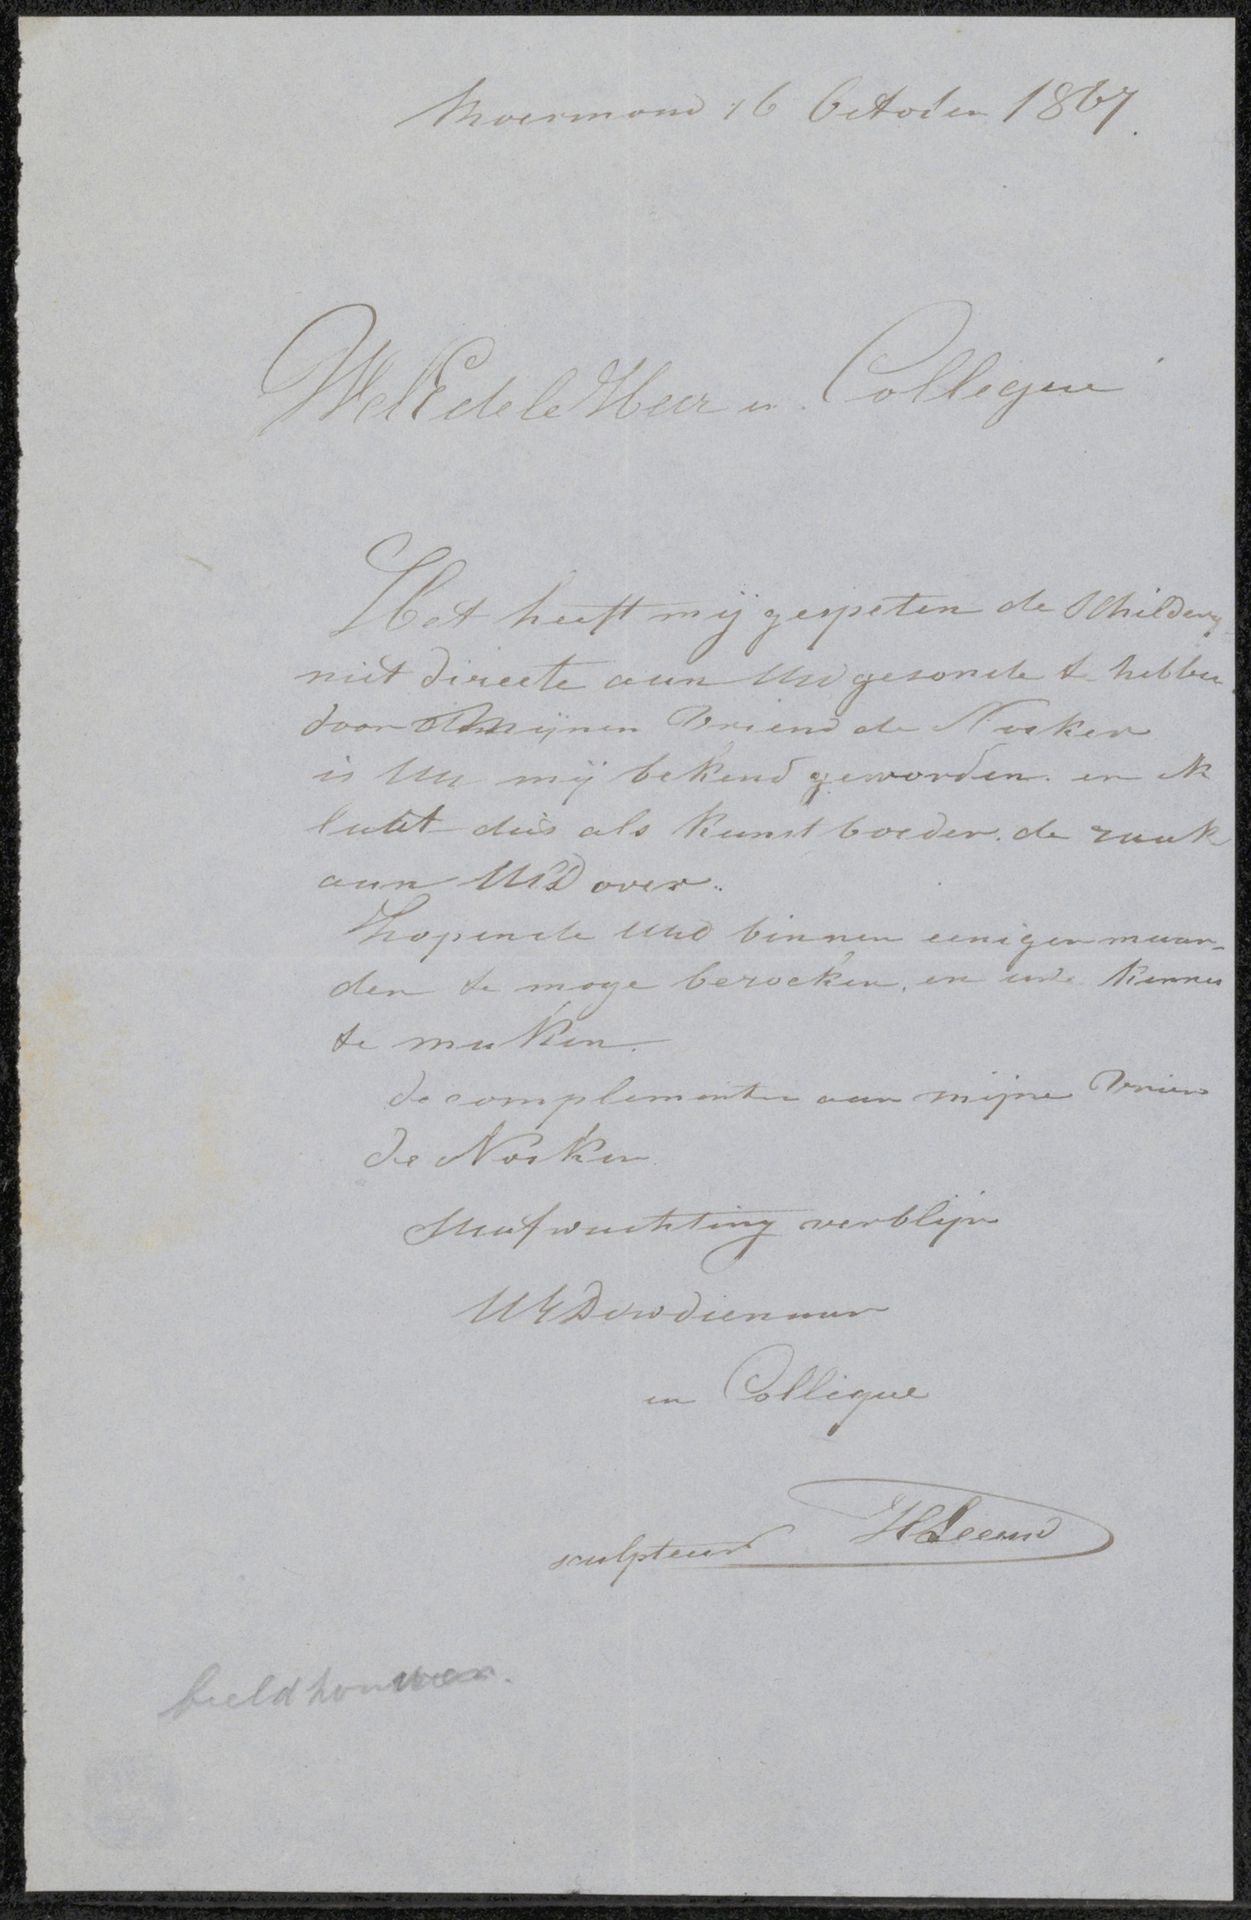 Roermond 16 October 1867.
WelEdele Heer en Collegue
Het heeft mij gespeten de Schildery
niet directe aan UEd gesonde te hebben
door Mijnen Vriend de Nosker
is UE mij bekend geworden. en ik
latet dus als kunst boeder. de zaak
aan UEd over..
Hopende UEd binnen eenigen maan-
den te moge bezoeken, en uwe kennis
te maken.
de complimenten aan mijne Vrien
de Nosken
In afwachting verblijve
UEDwdienaar
en Collegue
sculpteur HLeeuw
beeldhouwer.